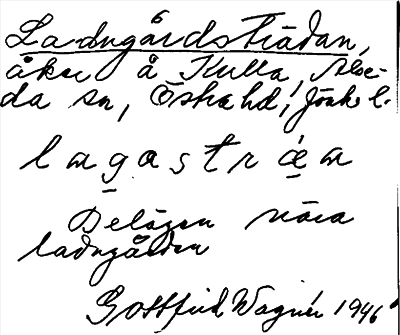 Ladugårdsträdan,
åker å Kulla, Alse-
da sn, Östra hd, Jönk. l.
l a g a s t r æ a
Belägen nära
ladugården
Gottfrid Wagnér 1946